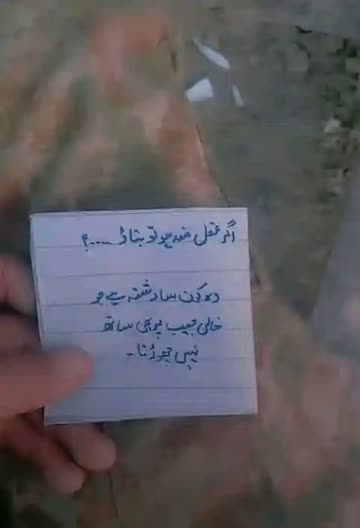 اگر عقل مند ہو تو بتاؤ ....؟
وہ کون سا رشتہ ہے جو
خالی جیب پر بھی ساتھ
نہیں چھوڑتا -